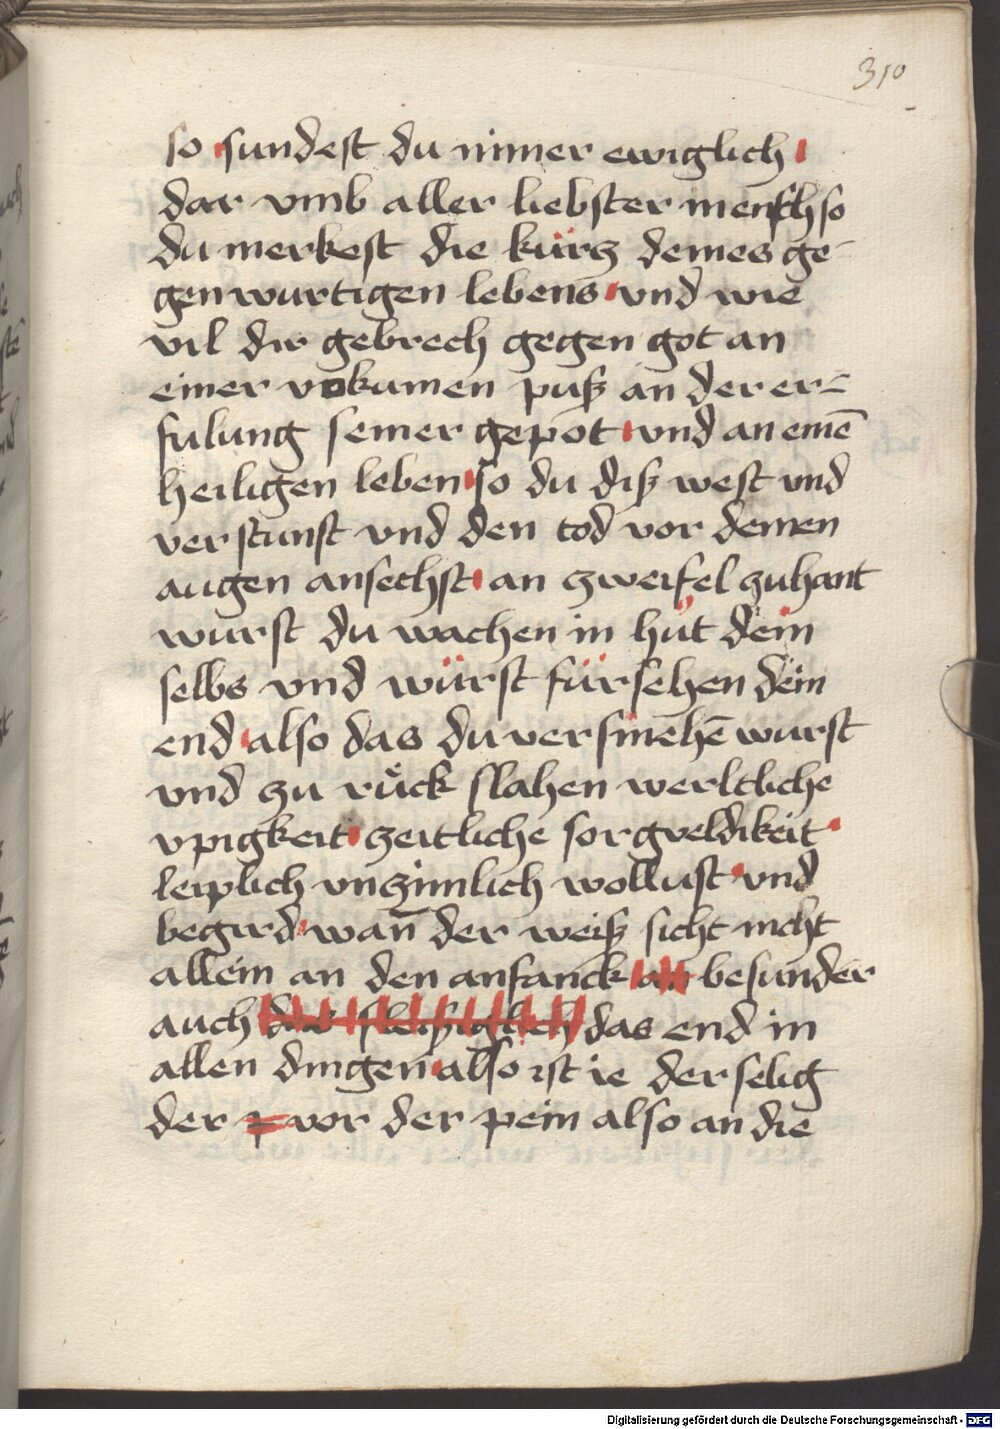 310
so sundest du nimer ewiglich
dar vmb aller liebster mensch so
du merkest die kürz deines ge-
genwurtigen lebens vnd wie
vil dir gebrech gegen got an
einer vokumen puß an der er=
fulung seiner gepot vnd an einē
heiligen leben so du diß west vnd
verstunst vnd den tod vor deinen
augen ansechst an zweifel zuhant
wurst du wachen in hüt dein
selbs vnd würst fürsehen dein
end also das du versmehē wurst
vnd zu růck slahen werltliche
vpigkeit zeitliche sorgveldikeit
leiplich vnzimlich wollust vnd
begird wan̄ der weiß sicht nicht
allein an den anfanck besunder
auch das end in
allen dingen also ist ie der selig
der vor der pein also an die
Digitalisierung gefördert durch die Deutsche Forschungsgemeinschaft - DFG